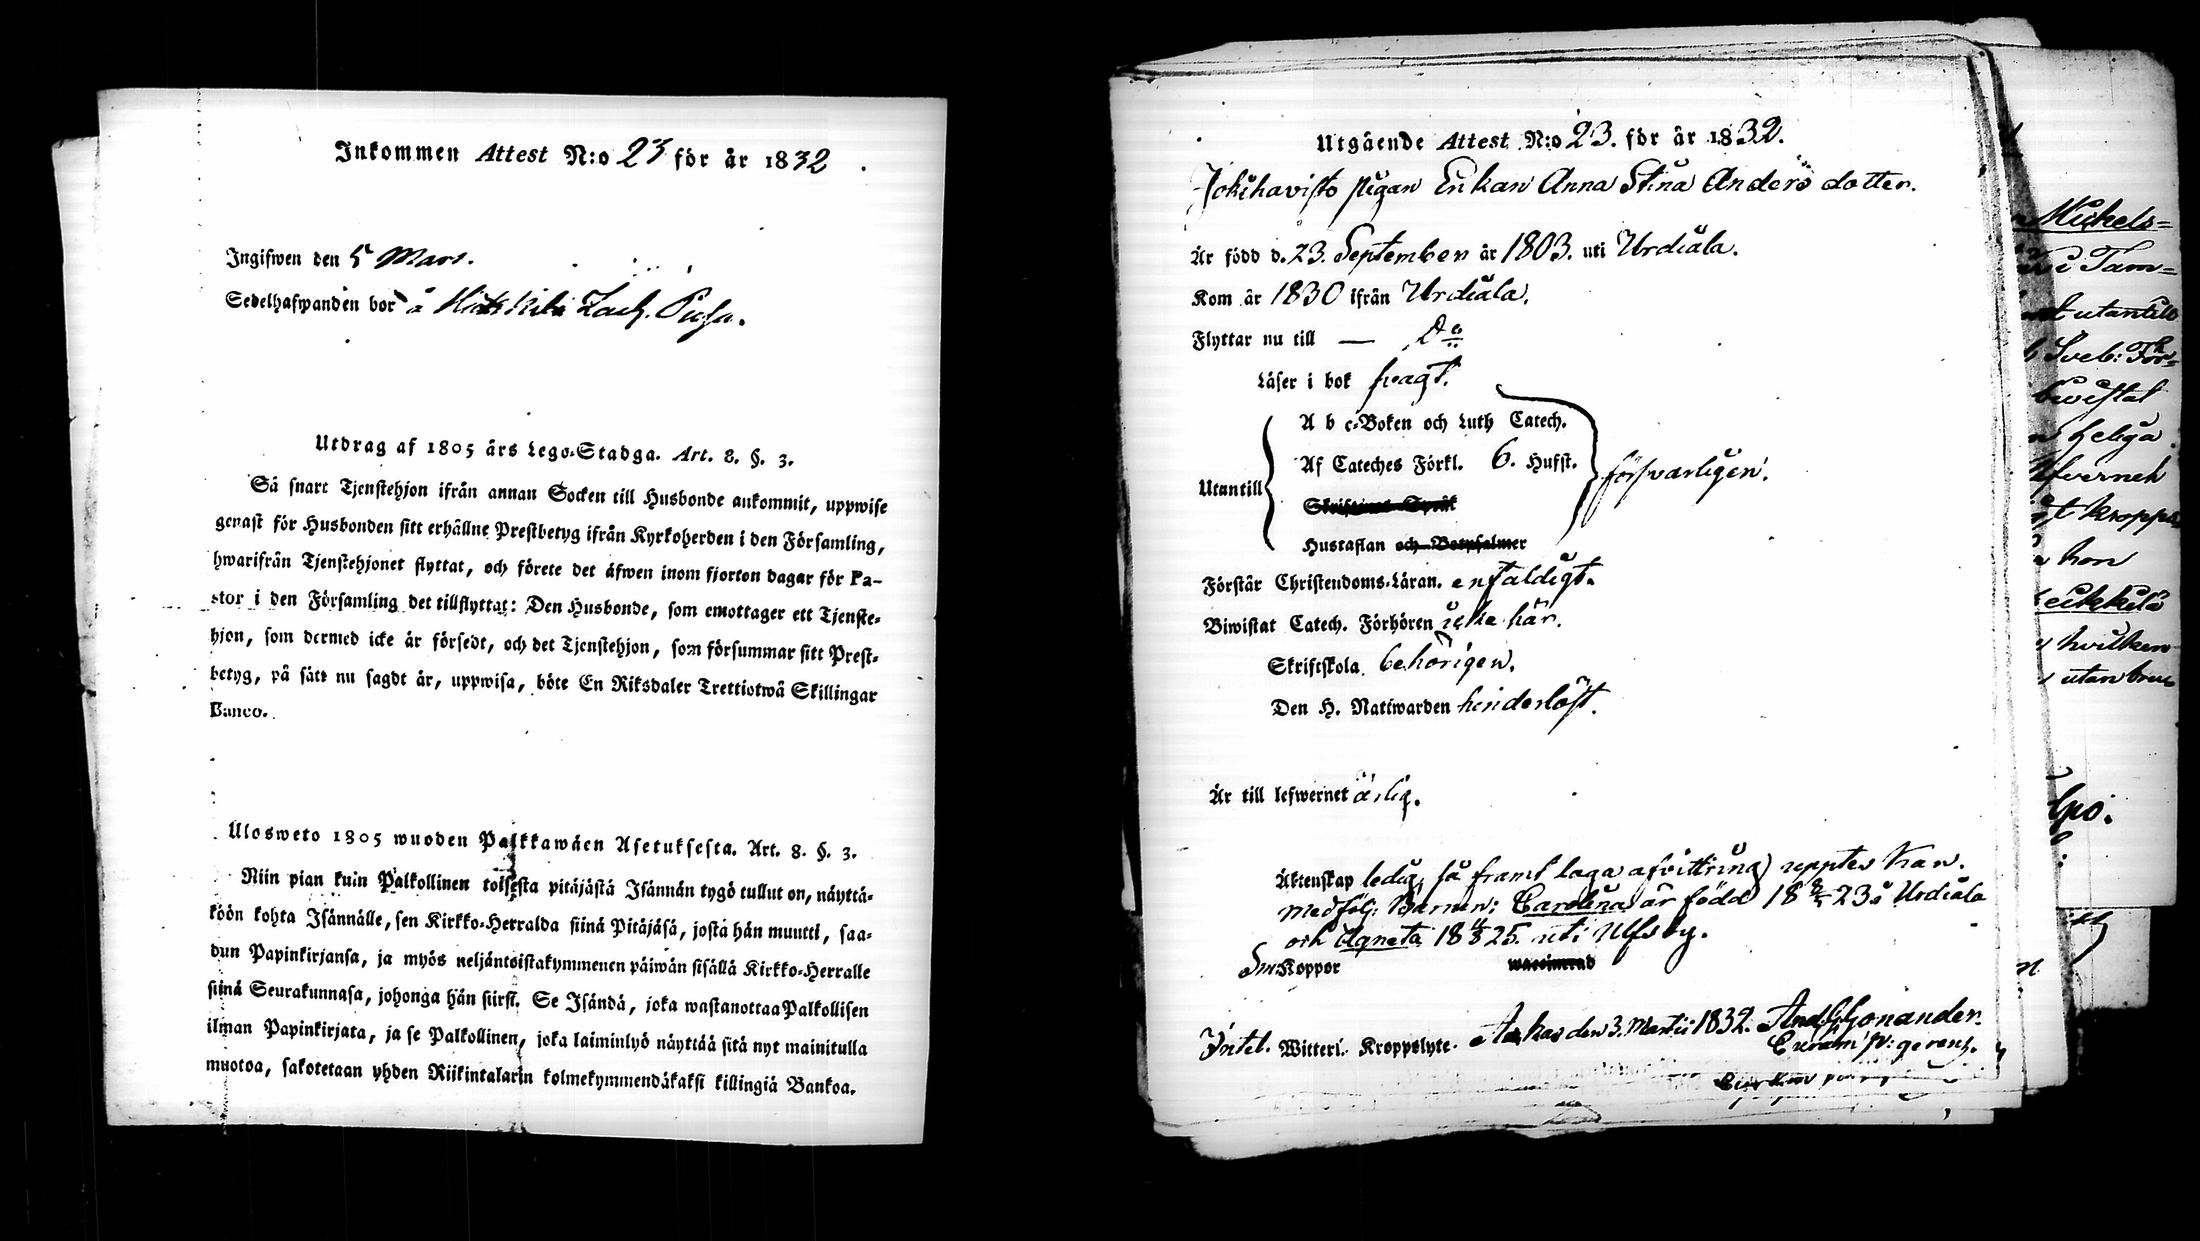 Inkommen Attest N:o 23 för år 1832
Ingifwen den 5 Mars.
Sedelhafwanden bor å
Utdrag af 1805 års Lego-Stadga. Art. 8. §. 3.
Så snart Tjenstehjon ifrån annan Socken till Husbonde ankommit, uppwise
genast för Husbonden sitt erhållne Prestbetyg ifrån Kyrkoherden i den Församling,
hwarifrån Tjenstehjonet flyttat, och förete det äfwen inom fjorton dagar för Pa-
stor i den Församling det tillflyttat: Den Husbonde, som emottager ett Tjenste-
hjon, som dermed icke är försedt, och det Tjenstehjon, som försummar sitt Prest-
betyg, på sätt nu sagdt är, uppwisa, böte En Riksdaler Trettiotwå Skillingar
Banco.
Ulosweto 1805 wuoden Palkkawäen Asetuksesta. Art. 8. §. 3.
Niin pian kuin Palkollinen toisesta pitäjästä Isännän tygö tullut on, näyttä-
köön kohta Isännälle, sen Kirkko-Herralda siinä Pitäjäsä, josta hän muutti, saa-
dun Papinkirjansa, ja myös neljäntoistakymmenen päiwän sisällä Kirkko-Herralle
siinä Seurakunnasa, johonga hän siirsi. Se Isändä, joka wastanottaa Palkollisen
ilman Papinkirjata, ja se Palkollinen, joka laiminlyö näyttää sitä nyt mainitulla
muotoa, sakotetaan yhden Riikintalarin kolmekymmendäkaksi killingiä Bankoa.
Utgående Attest N:o 23. för år 1832.
Jokihavisto pigan Enkan Anna Stina Anders dotter.
Är född d. 23. September år 1803. uti Urdiala.
Kom år 1830 ifrån Urdiala.
Flyttar nu till — Do
Läser i bok svagt.
A b c-Boken och Luth Catech.
Af Cateches Förkl. 6. Hufst.
Utantill försvarligen.
Skriftenes Språk
Hustaflan och Botpsalmer
Förstår Christendoms-Läran. enfaldigt.
Biwistat Catech. Förhören icke här.
Skriftskola behörigen.
Den H. Nattwarden hinderlöst.
Är till lefwernet ärlig.
Äktenskap ledig, så framt laga afvittring upptes kan.
medfölj: Barnen: Carolina är född 18 23 i Urdiala
och Agneta 18 25. uti Ulfsby.
Sm: Koppor waccinerad
Intet. Witterl. Kroppslyte. Askas den 3. Martii 1832.
Michels-
i Tam-
utantill
Sveb: För-
biwistat
heliga
hon
hvilken
utan